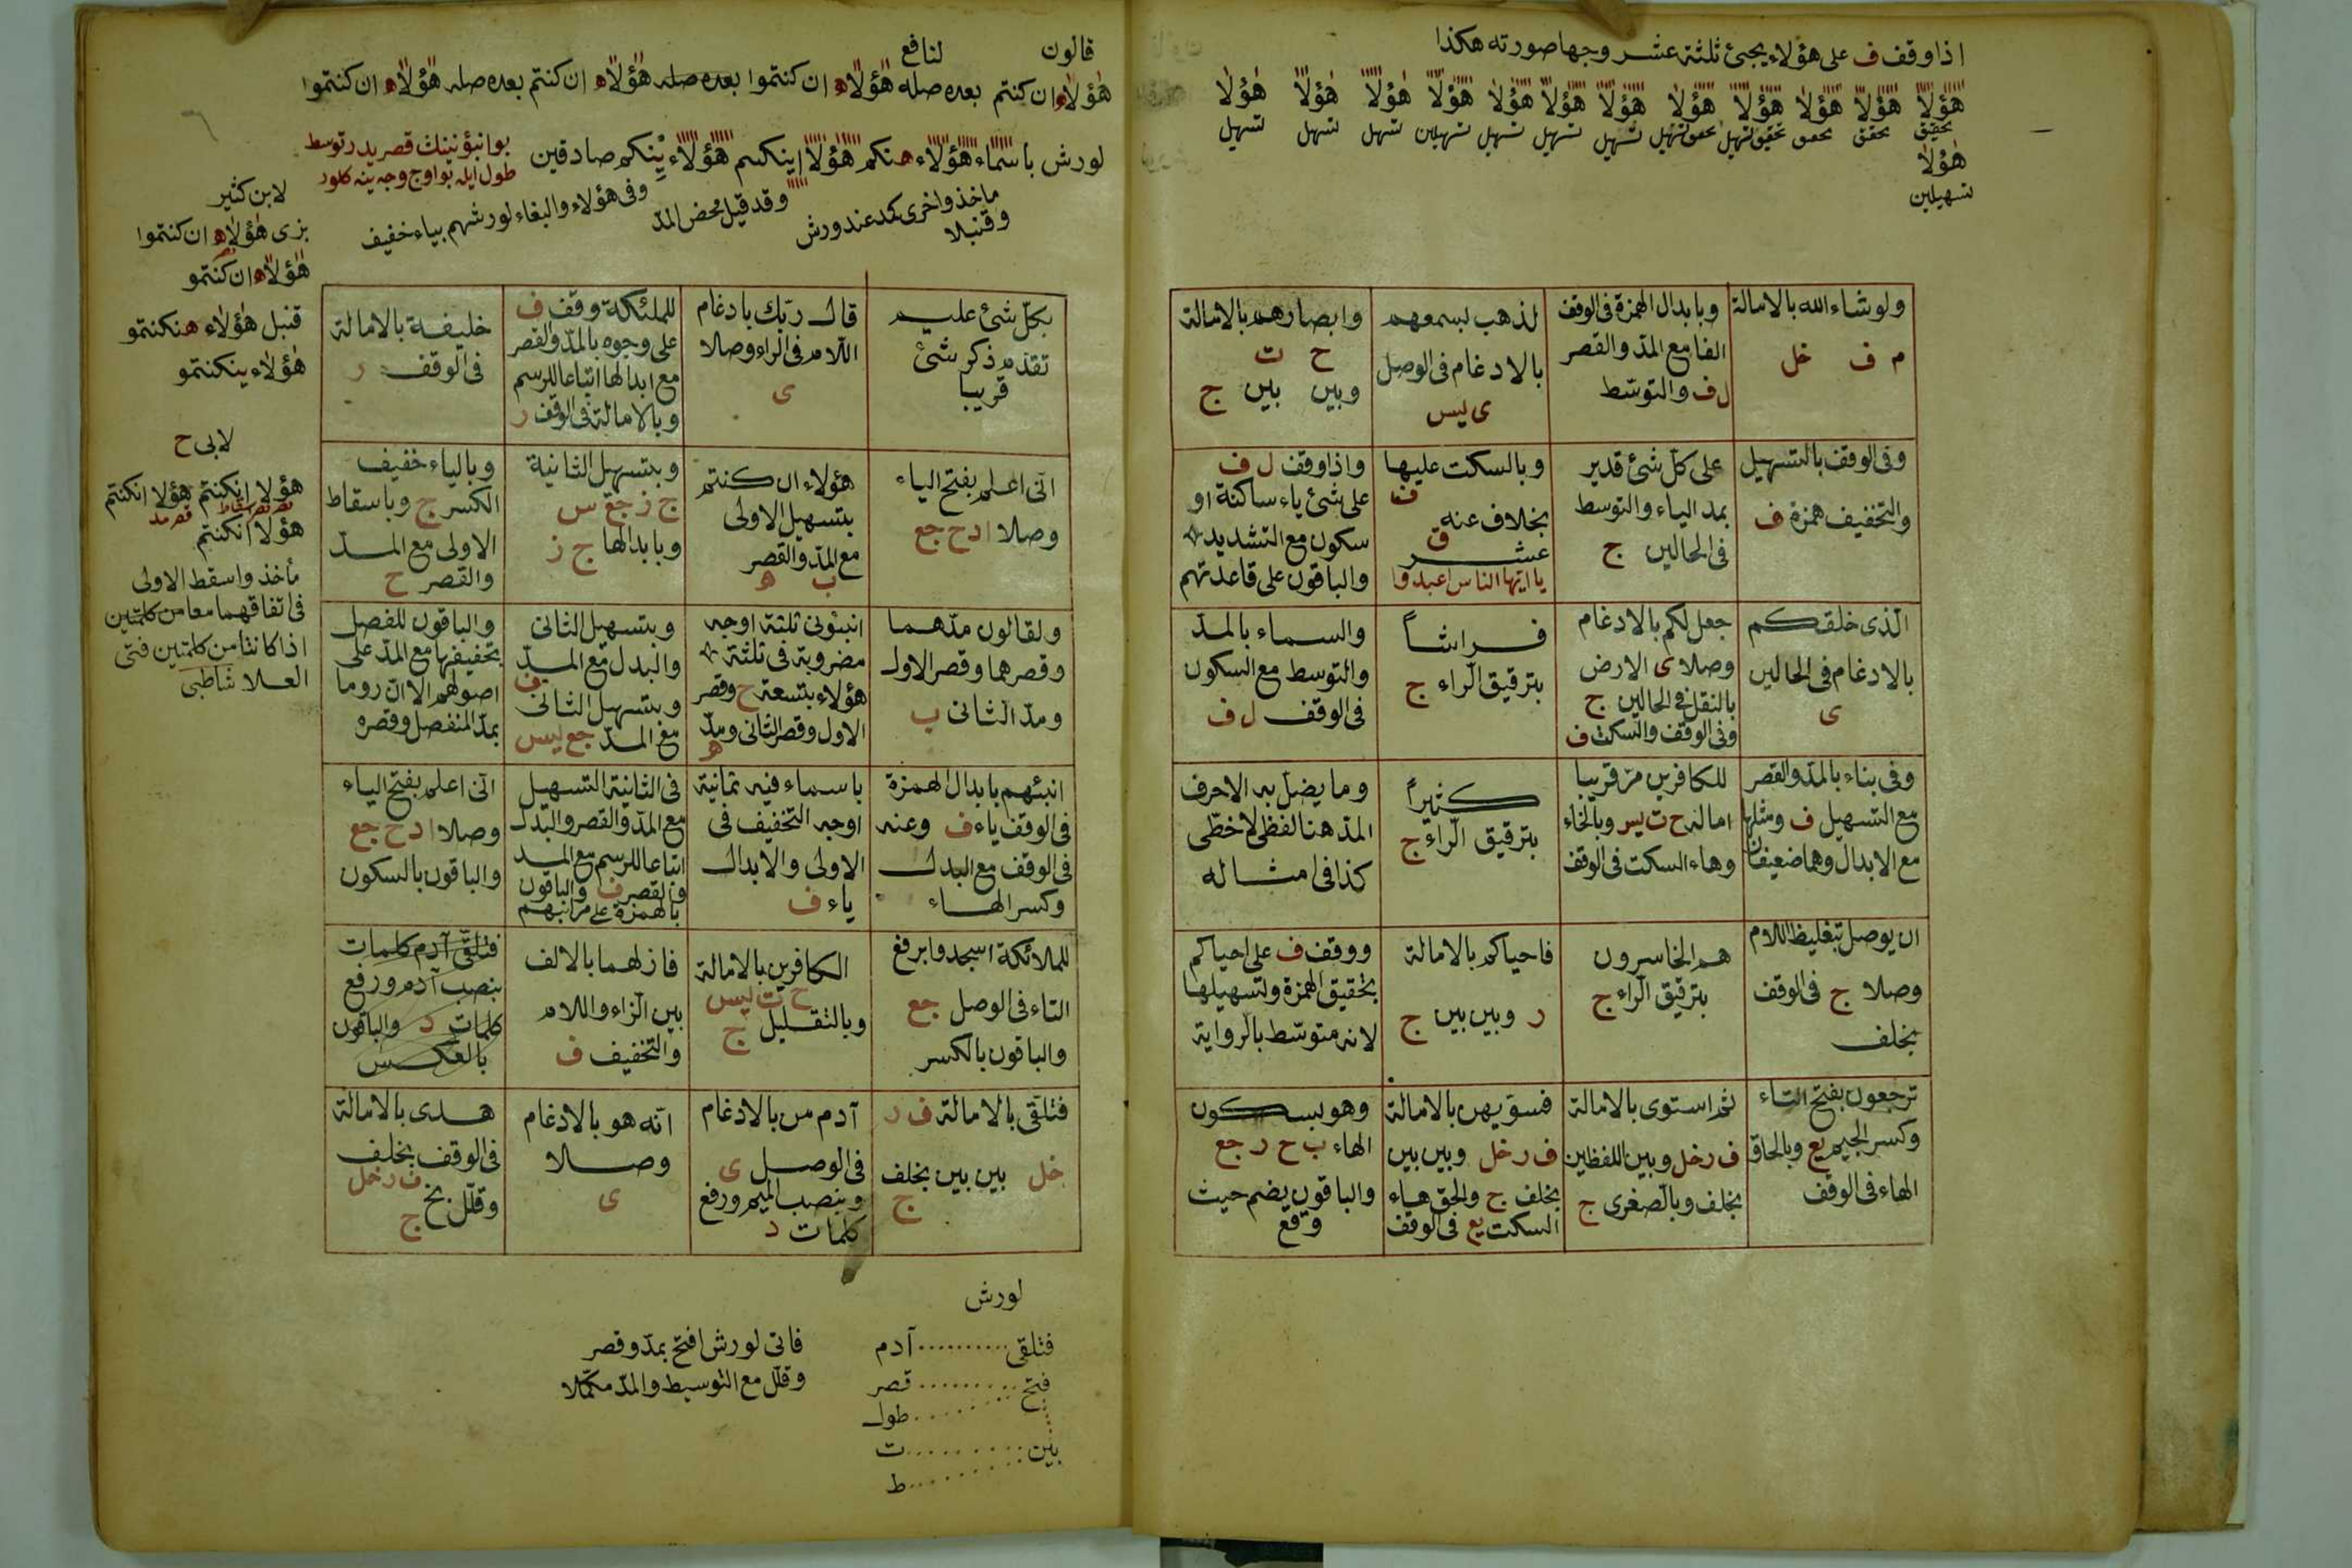 اذا وقف ف على هؤلاء يجئ ثلثة عشر وجها صورته هكذا
هٰؤلا هٰؤلا هٰؤلا هٰؤلا هٰؤلا هٰؤلا هٰؤلا هٰؤلا هٰؤلا هٰؤلا هٰؤلا هٰؤلا
هٰؤلا
تسهيلين
ولو شاء الله بالامالة
م ف خل
وبابدال الهمزة فى الوقف
الفا مع المدّ والقصر
ل ف والتوسّط
لذهب بسمعهم
بالادغام فى الوصل
ى ليس
وابصارهم بالامالة
ح ت
وبين بين ج
وفى الوقف بالتسهيل
والتخفيف همزة ف
على كلّ شئ قدير
بمد الياء والتوسط
فى الحالين ج
وبالسكت عليها
ف
بخلاف عنه
ق
عشر
يا ايّها الناس اعبدوا
واذا وقف ل ف
على شئ ياء ساكنة او
سكون مع التشديد
والباقون على قاعدتهم
الّذى خلقكم
بالادغام فى الحالين
ى
جعل لكم بالادغام
وصلا ى الارض
بالنقل فى الحالين ج
وفى الوقف والسكت ف
فراشاً
بترقيق الرّاء ج
والسماء بالمدّ
والتوسط مع السكون
فى الوقف ل ف
وفى بناء بالمدّ والقصر
مع التسهيل ف ومثلها
مع الابدال وهما ضعيفان
للكافرين مرّ قريبا
اماله ح ت يس
وهاء السكت فى الوقف
كثيراً
بترقيق الرّاء ج
وما يضلّ به الا حرف
المدّ هنا لفظى لا خطّى
كذا فى مثاله
ان يوصل بتغليظ اللام
وصلا ج فى الوقف
بخلف
هم الخاسرون
بترقيق الرّاء ج
فاحياكم بالامالة
ر وبين بين ج
ووقف ف على احياكم
بتحقيق الهمزة وتسهيلها
لانه متوسّط بالرواية
ترجعون بفتح التاء
وكسر الجيم يع وبالحاق
الهاء فى الوقف
ثم استوى بالامالة
ف ر خل وبين اللفظين
بخلف وبالصغرى ج
فسوّيهن بالامالة
ف ر خل وبين بين
بخلف ج والحق هاء
السكت يع فى الوقف
وهو بسكون
الهاء ب ح ر جع
والباقون بضم حيث
وقع
قالون لنافع
هٰؤلاء ان كنتم بعده صله هؤلاء ان كنتموا بعده صله هؤلاء ان كنتم بعده صله هؤلاء ان كنتموا
لورش باسماء هؤلاء هنكم هؤلا اينكم هؤلاء ينكم صادقين
بو انبؤنينك قصريدر توسط
طول ايله بو اوج وجه ينه كلور
ماخذ واخرى كمد عند ورش
وقنبلا
وقد قيل محض المدّ
وفى هؤلاء والبغاء لورشهم بياء خفيف
لابن كثير
بزى هٰؤلاء ان كنتموا
هٰؤلاء ان كنتمو
قنبل هٰؤلاء هنكنتمو
هٰؤلاء ينكنتمو
لابى ح
هؤلا انكنتم هؤلا انكنتم
هؤلا انكنتم
مأخذ واسقط الاولى
فى اتفاقهما معا من كلمتين
اذا كانتا من كلمتين فتى
العلا شاطبى
بكلّ شئ عليم
تقدّم ذكر شئ
قريبا
قال ربّك بادغام
اللّام فى الراء وصلا
ى
للملئكة وقف ف
على وجوه بالمدّ والقصر
مع ابدالها اتباعا للرسم
وبالامالة فى الوقف ر
خليفة بالامالة
فى الوقف ر
انّى اعلم بفتح الياء
وصلا ا د ح جع
هؤلاء ان كنتم
بتسهيل الاولى
مع المدّ والقصر
ب ه
وبتسهيل الثانية
ج ز جع س
وبابدالها ج ز
وبالياء خفيف
الكسر ج وباسقاط
الاولى مع المدّ
والقصر ح
ولقالون مدّهما
وقصرهما وقصر الاول
ومدّ الثانى ب
انبئونى ثلثة اوجه
مضروبة فى ثلثة
هؤلاء بتسعة ح وقصر
الاول وقصر الثانى ومدّ
ه
وبتسهيل الثانى
والبدل مع المدّ
وبتسهيل الثانى
مع المدّ جع ليس
والباقون للفصل
بتخفيفها مع المدّ على
اصولهم الا ان روما
بمدّ المنفصل وقصره
انبئهم بابدال الهمزة
فى الوقف ياء ف وعنه
فى الوقف مع البدل
وكسر الهاء
باسماء فيه ثمانية
اوجه التخفيف فى
الاولى والابدال
ياء ف
فى الثانية التسهيل
مع المدّ والقصر والبدل
اتباعا للرسم مع المد
والقصر ف والباقون
بالهمزة على مراتبهم
انّى اعلم بفتح الياء
وصلا ا د ح جع
والباقون بالسكون
للملائكة اسجدوا برفع
التاء فى الوصل جع
والباقون بالكسر
الكافرين بالامالة
ح ت ليس
وبالتقليل ج
فازلهما بالالف
بين الزاء واللام
والتخفيف ف
فتلقّى آدم كلمات
بنصب آدم ورفع
كلمات د والباقون
بالعكس
فتلقّى بالامالة ف ر
خل بين بين بخلف
ج
آدم من بالادغام
فى الوصل ى
وبنصب الميم ورفع
كلمات د
انّه هو بالادغام
وصلا
ى
هدى بالامالة
فى الوقف بخلف
ف ر خل
وقلّل بخ
ج
لورش
فتلقى آدم
فتح قصر
طول
بين ت
ط
فاتى لورش افتح بمدّ وقصر
وقلّل مع التوسيط والمدّ مكمّلا